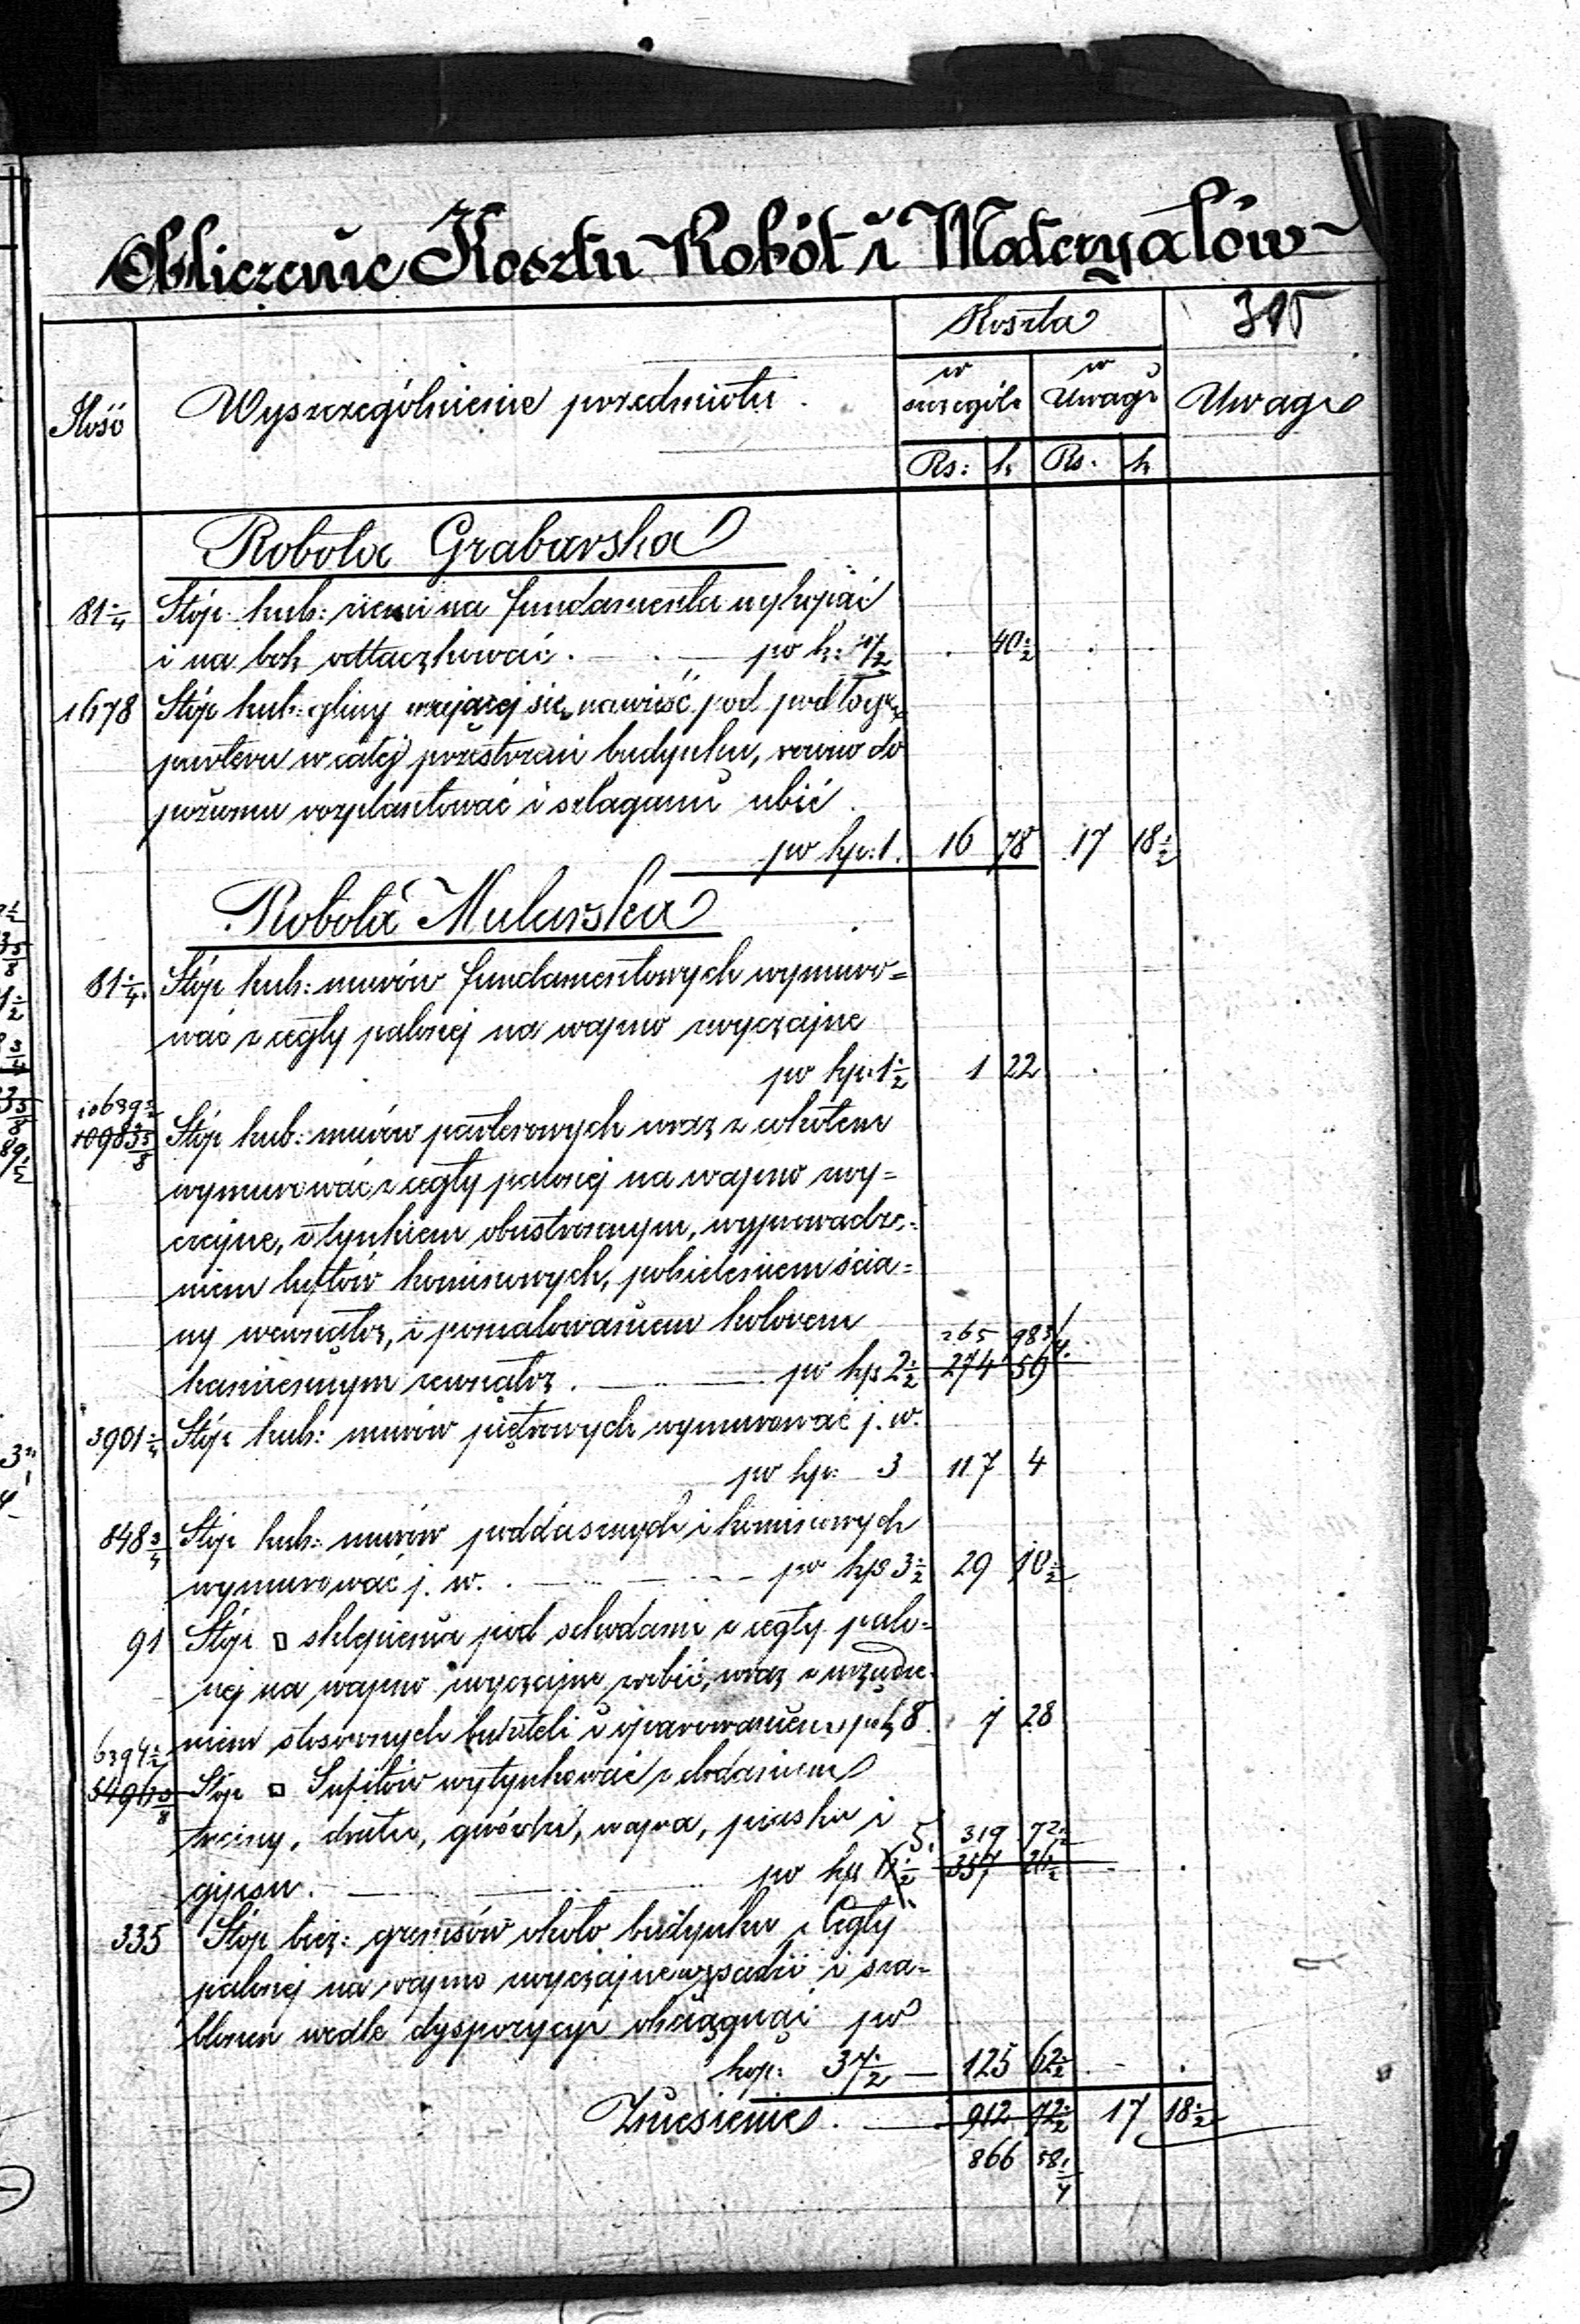 Obliczenie Kosztu Robót i Materyałów
315
Ilość Wyszczególnienie przedmiotu. Koszta Uwagi
w szczególe w Uwagi
Rs: k Rs. k
Robota Grabarska
81 1/4 Stóp kub: ziemi na fundamenta wykopać
i na bok odtaczkować. po k: 1/2 . 40 1/2 . .
1678 Stóp kub: gliny nawieść pod podłogę
parteru w całej przestrzeni budynku, równo do
poziomu rozplantować i szlagami ubić.
po kp: 1. 16 78 17 18 1/2
Robota Mularska
81 1/4 Stóp kub: murów fundamentowych wymuro=
wać z cegły palonej na wapno zwyczajne
po kp: 1 1/2 1 22 . .
10639 1/2
10983 5/8 Stóp kub: murów parterowych wraz z cokułem
wymurować z cegły palonej na wapno zwy=
czajne, z tynkiem obustronnym, wyprowadze=
niem luftów kominowych, pobieleniem ścia=
ny wewnątrz, i pomalowaniem kolorem
265 98 3/4
kamiennym zewnątrz. po kp 2 1/2 274 59
3901 1/4 Stóp kub: murów piętrowych wymurować j. w.
po kp: 3 117 4
848 3/4 Stóp kub: murów poddasznych i kominowych
wymurować j. w. po kp 3 1/2 29 70 1/2
91 Stóp □ sklepienia pod schodami z cegły palo=
nej na wapno zwyczajne zrobić, wraz z urządze=
niem stosownych i oparowaniem po k 8. 7 28
6394 1/2
5496 5/8 Stóp □ Sufitów wytynkować z dodaniem
trzciny, drutu, gwoździ, wapna, piasku i
5. 319 72 1/2
gipsu. po kp 6 1/2 357 26 1/2 .
335 Stóp bież: gzemsów około budynku z Cegły
palonej na wapno zwyczajne wysadzić i sza=
blonem wedle dyspozycyi obciągnąć po
kop: 37 1/2 125 62 1/2 . .
Zniesienie. 912 72 1/2 17 18 1/2
866 58 1/4